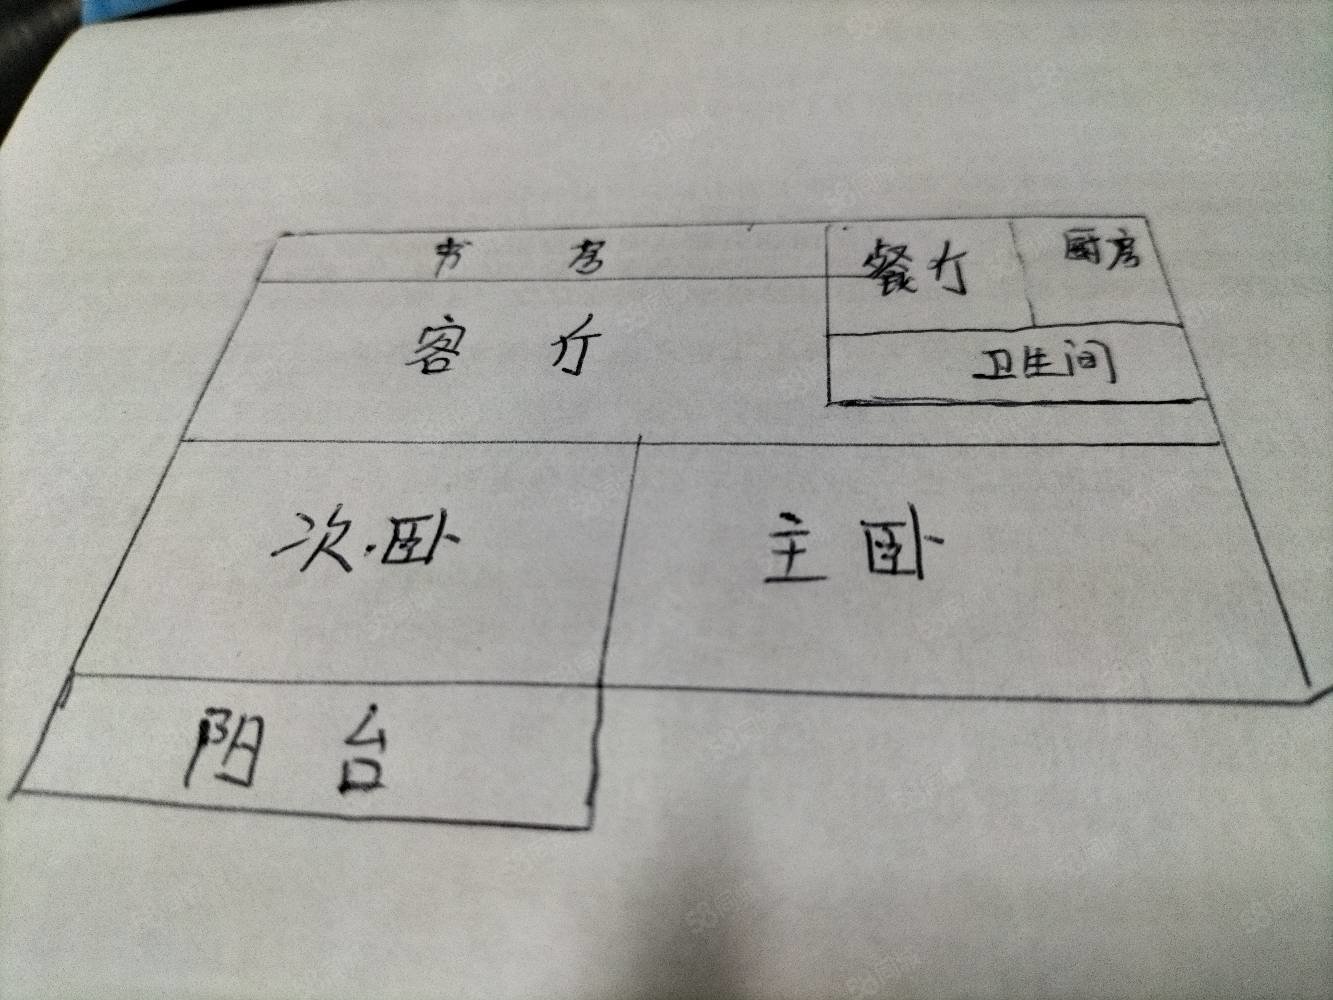 书房
餐厅
厨房
客厅
卫生间
次卧
主卧
阳台
58同城